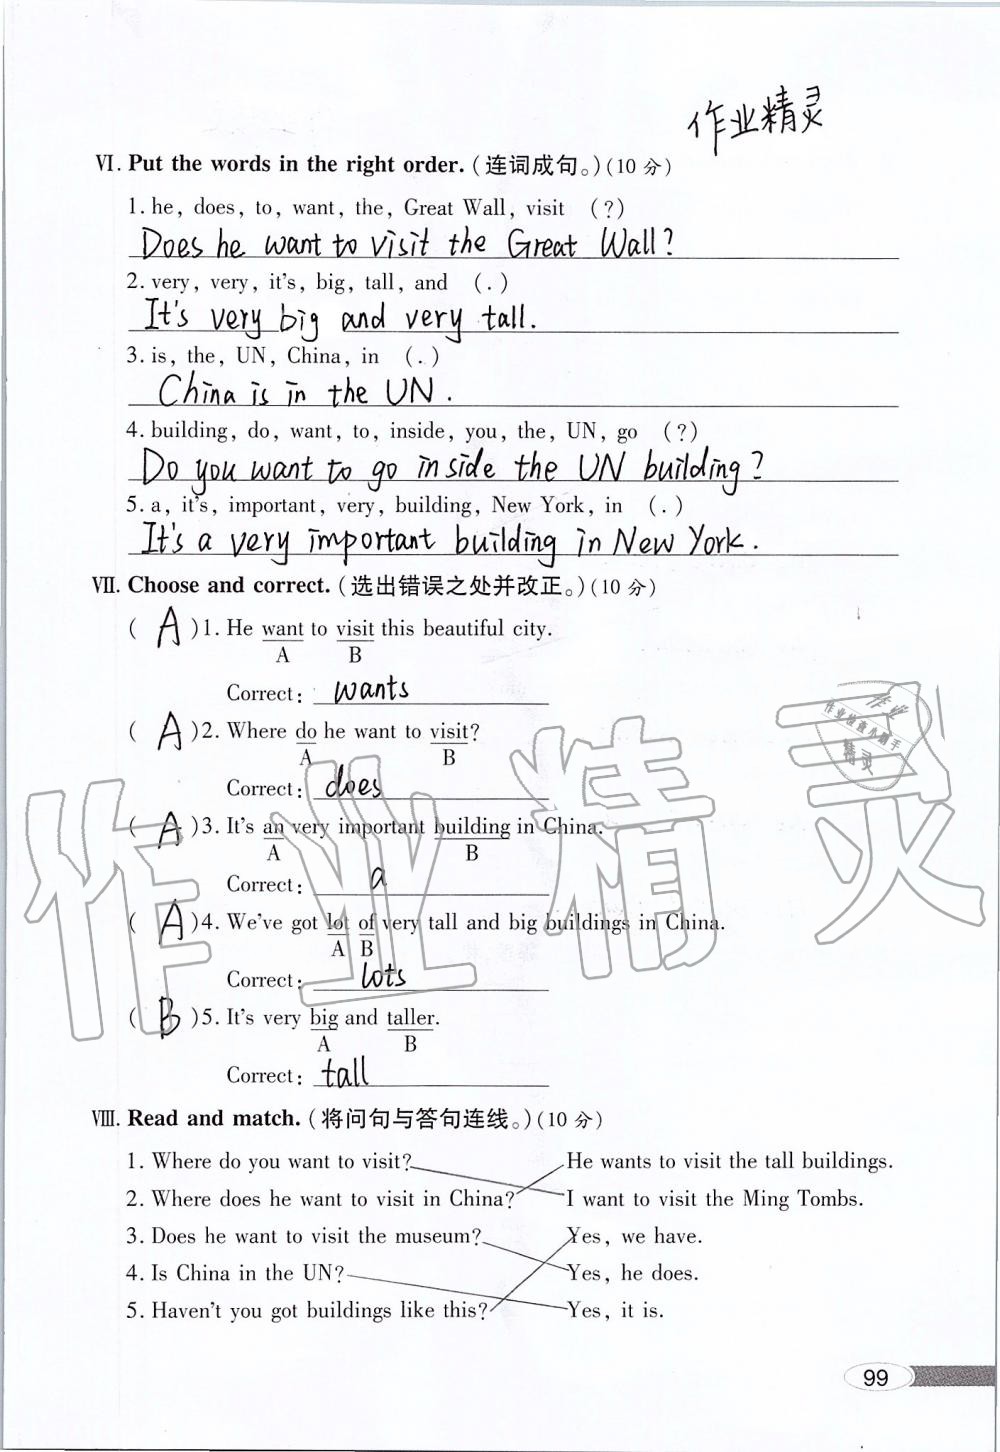 作业精灵
Ⅵ. Put the words in the right order.(连词成句。)(10 分)
1. he, does, to, want, the, Great Wall, visit (?)
Does he want to visit the Great Wall?
2. very, very, it's, big, tall, and (.)
It's very big and very tall.
3. is, the, UN, China, in (.)
China is in the UN.
4. building, do, want, to, inside, you, the, UN, go (?)
Do you want to go inside the UN building?
5. a, it's, important, very, building, New York, in (.)
It's a very important building in New York.
Ⅶ. Choose and correct.(选出错误之处并改正。)(10 分)
( A )1. He want to visit this beautiful city.
A B
Correct: wants
( A )2. Where do he want to visit?
A B
Correct: does
( A )3. It's an very important building in China.
A B
Correct: a
( A )4. We've got lot of very tall and big buildings in China.
A B
Correct: lots
( B )5. It's very big and taller.
A B
Correct: tall
Ⅷ. Read and match.(将问句与答句连线。)(10 分)
1. Where do you want to visit? He wants to visit the tall buildings.
2. Where does he want to visit in China? I want to visit the Ming Tombs.
3. Does he want to visit the museum? Yes, we have.
4. Is China in the UN? Yes, he does.
5. Haven't you got buildings like this? Yes, it is.
99
作业精灵
作业
作业检查小帮手
精灵